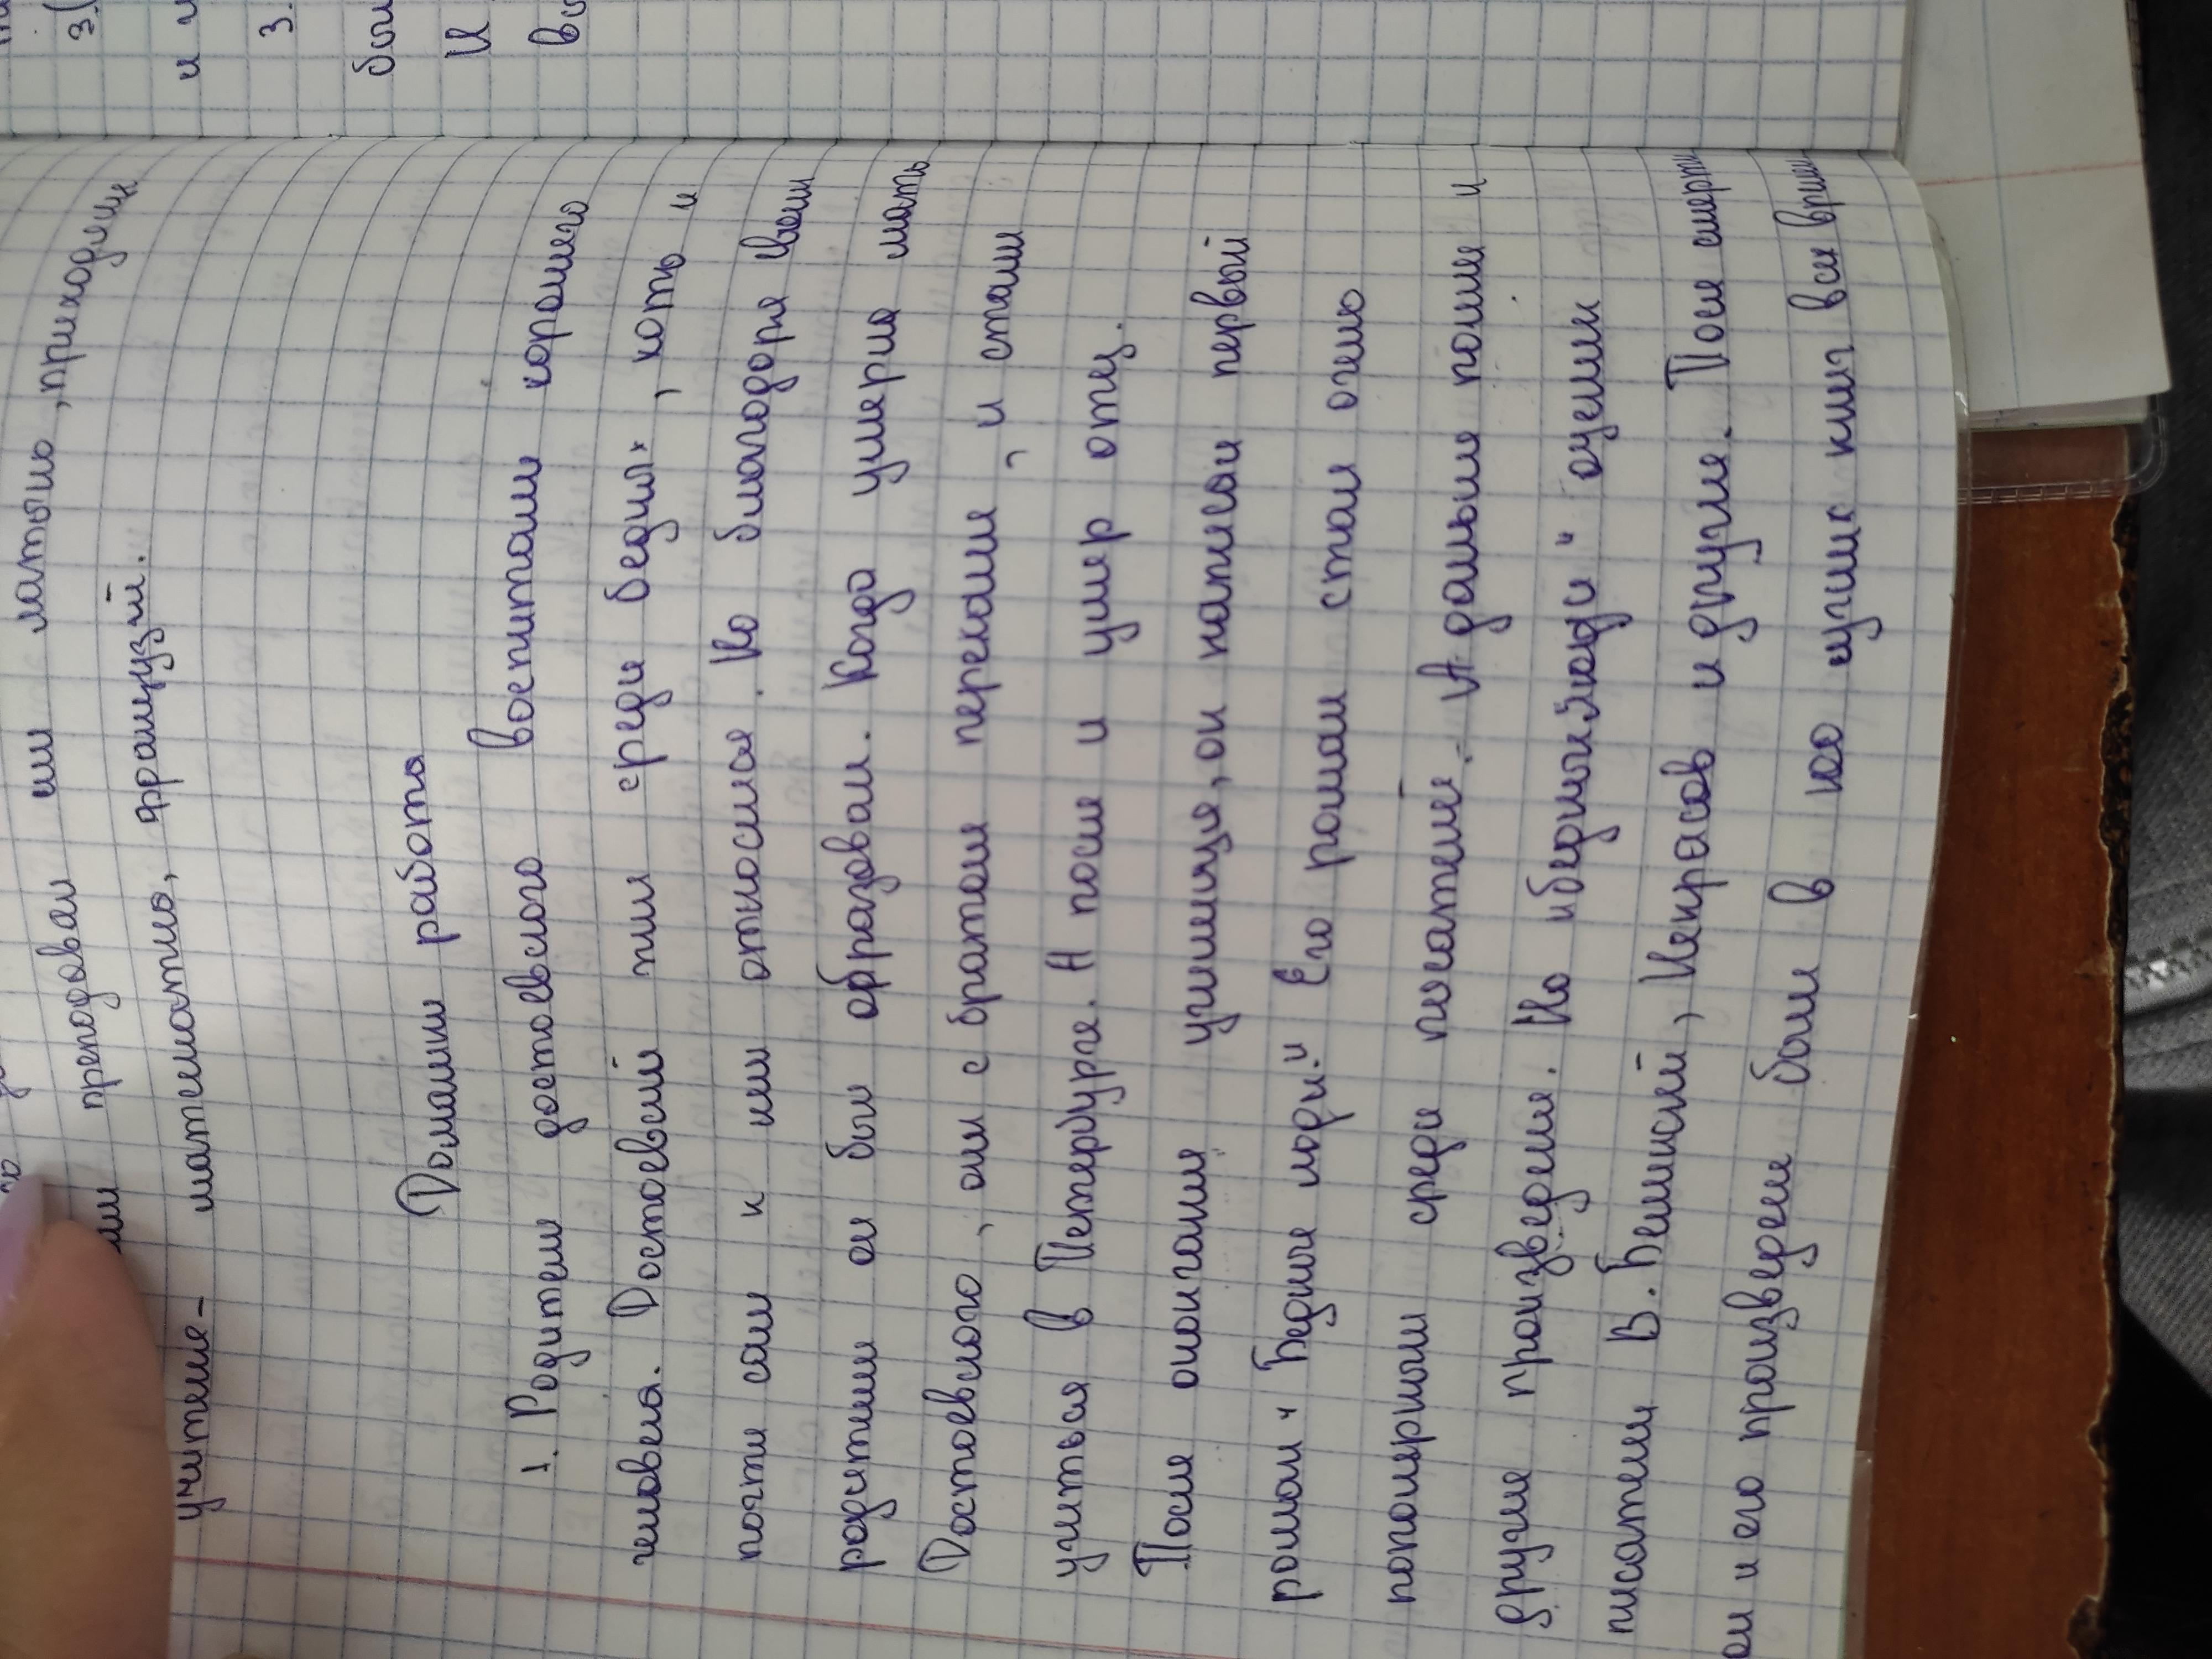 преподавал им латынь, приходили
учителя- математика, французкий.
Домашняя работа
1. Родители достоевского воспитали хорошего
человека. Достоевский жил среди бедных, хоть и
почти сам к ним относился. Но благодаря своим
родителям он был образован. Когда умерла мать
Достоевского, они с братом переехали, и стали
учиться в Петербурге. А после и умер отец.
После окончания училища, он написал первый
роман "Бедные люди" Его роман стал очень
популярным среди писателей. А дальше пошли и
другие произведения. Но "бедных люди" оценили
писатели В. Белинский, Некрасов и другие. После смерти
он и его произведен были в
3.
и
3.
был
И